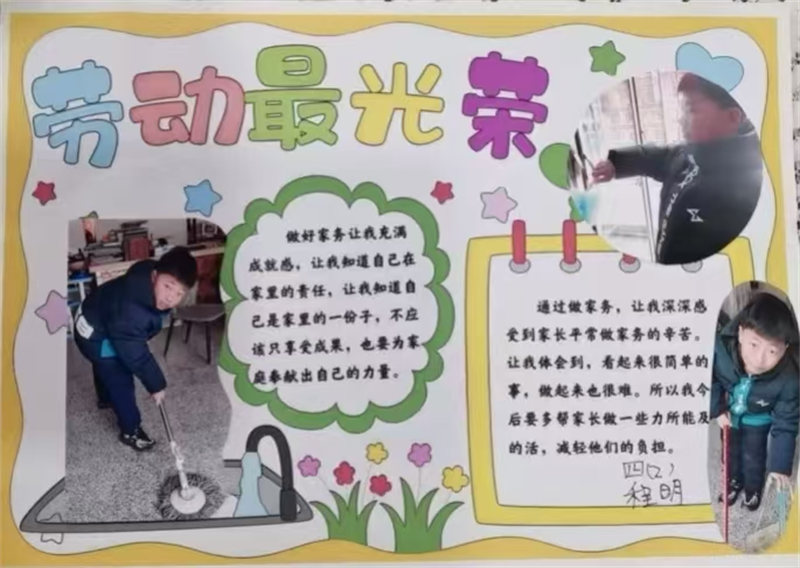 劳动最光荣
做好家务让我充满
成就感，让我知道自己在
家里的责任，让我知道自
己是家里的一份子，不应
该只享受成果，也要为家
庭奉献出自己的力量。
通过做家务，让我深深感
受到家长平常做家务的辛苦。
让我体会到，看起来很简单的
事，做起来也很难。所以我今
后要多帮家长做一些力所能及
的活，减轻他们的负担。
程明